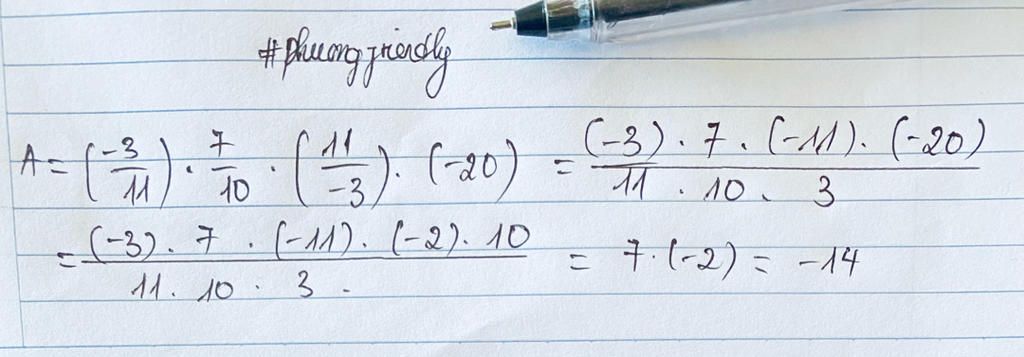 #phuongfriendly
A = (-3/11) . 7/10 . (11/-3) . (-20) = (-3) . 7 . (-11) . (-20) / 11 . 10 . 3
= (-3) . 7 . (-11) . (-2) . 10 / 11 . 10 . 3 . = 7 . (-2) = -14